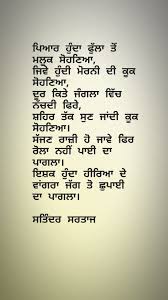 ਪਿਆਰ ਹੁੰਦਾ ਫੁੱਲਾ ਤੋਂ
ਮਲੂਕ ਸੋਹਣਿਆ,
ਜਿਵੇ ਹੁੰਦੀ ਮੋਰਨੀ ਦੀ ਕੂਕ
ਸੋਹਣਿਆ,
ਦੂਰ ਕਿਤੇ ਜੰਗਲਾ ਵਿੱਚ
ਨੱਚਦੀ ਫਿਰੇ,
ਸ਼ਹਿਰ ਤੱਕ ਸੁਣ ਜਾਂਦੀ ਕੂਕ
ਸੋਹਣਿਆ।
ਸੱਜਣ ਰਾਜ਼ੀ ਹੋ ਜਾਵੇ ਫਿਰ
ਰੋਲਾ ਨਹੀਂ ਪਾਈ ਦਾ
ਪਾਗਲਾ।
ਇਸ਼ਕ ਹੁੰਦਾ ਹੀਰਿਆ ਦੇ
ਵਾਂਗਰਾ ਜੱਗ ਤੋ ਛੁਪਾਈ
ਦਾ ਪਾਗਲਾ।
ਸਤਿੰਦਰ ਸਰਤਾਜ